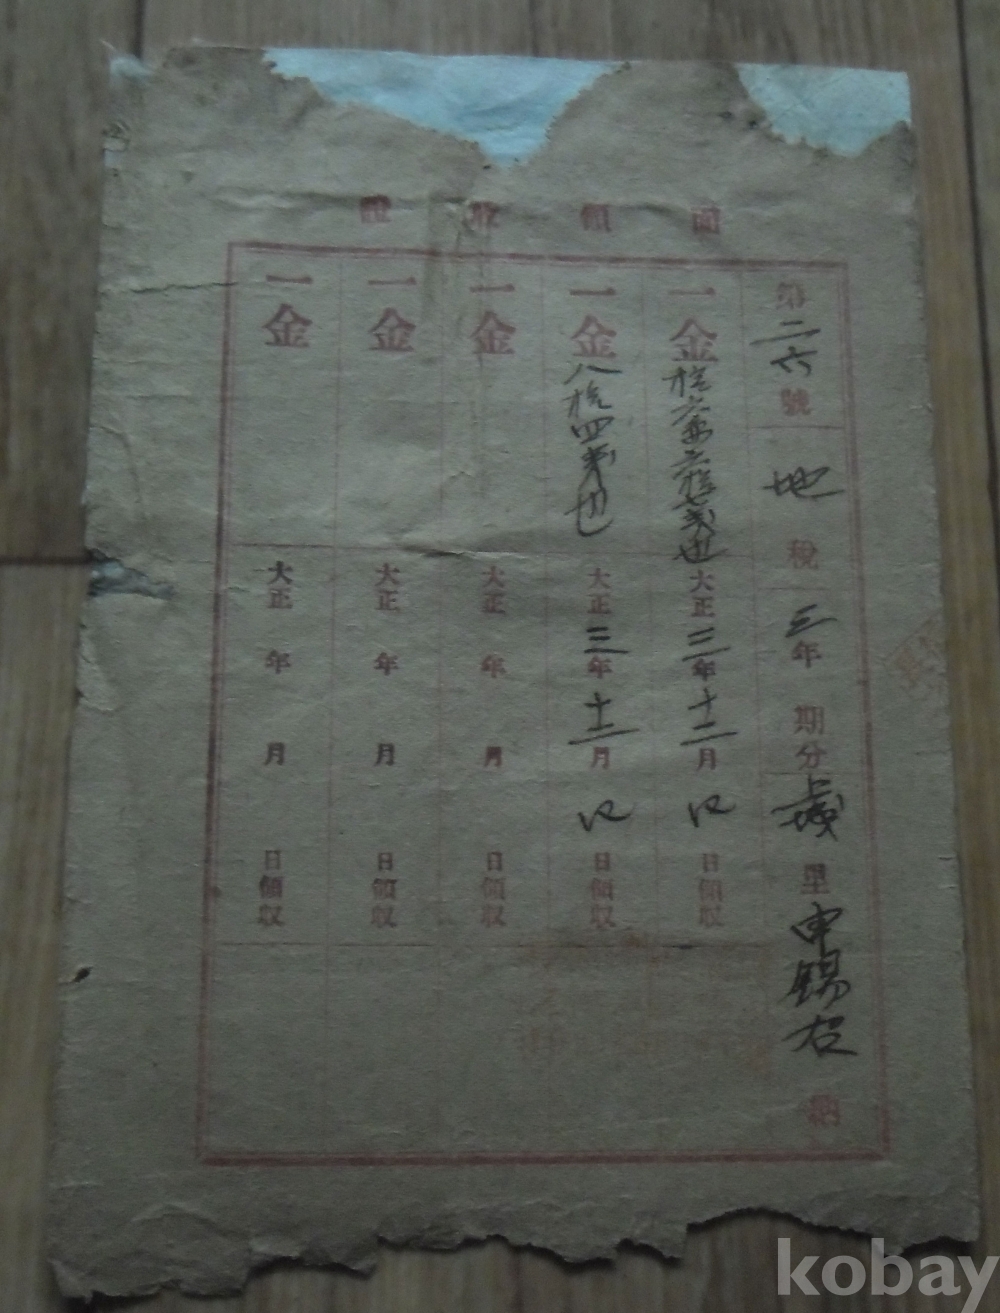 面領收證
第二六號 地稅 三年 期分 上城里 申錫右 納
一金 大正三年十二月 日領収
一金八拾四戋也 大正三年十二月 日領収
一金 大正 年 月 日領収
一金 大正 年 月 日領収
一金 大正 年 月 日領収
kobay